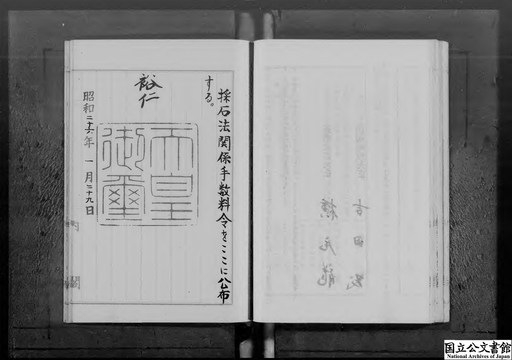 採石法関係手数料令をここに公布
する。
裕仁
天皇
御璽
昭和二十六年一月二十九日
内閣
国立公文書館
National Archives of Japan